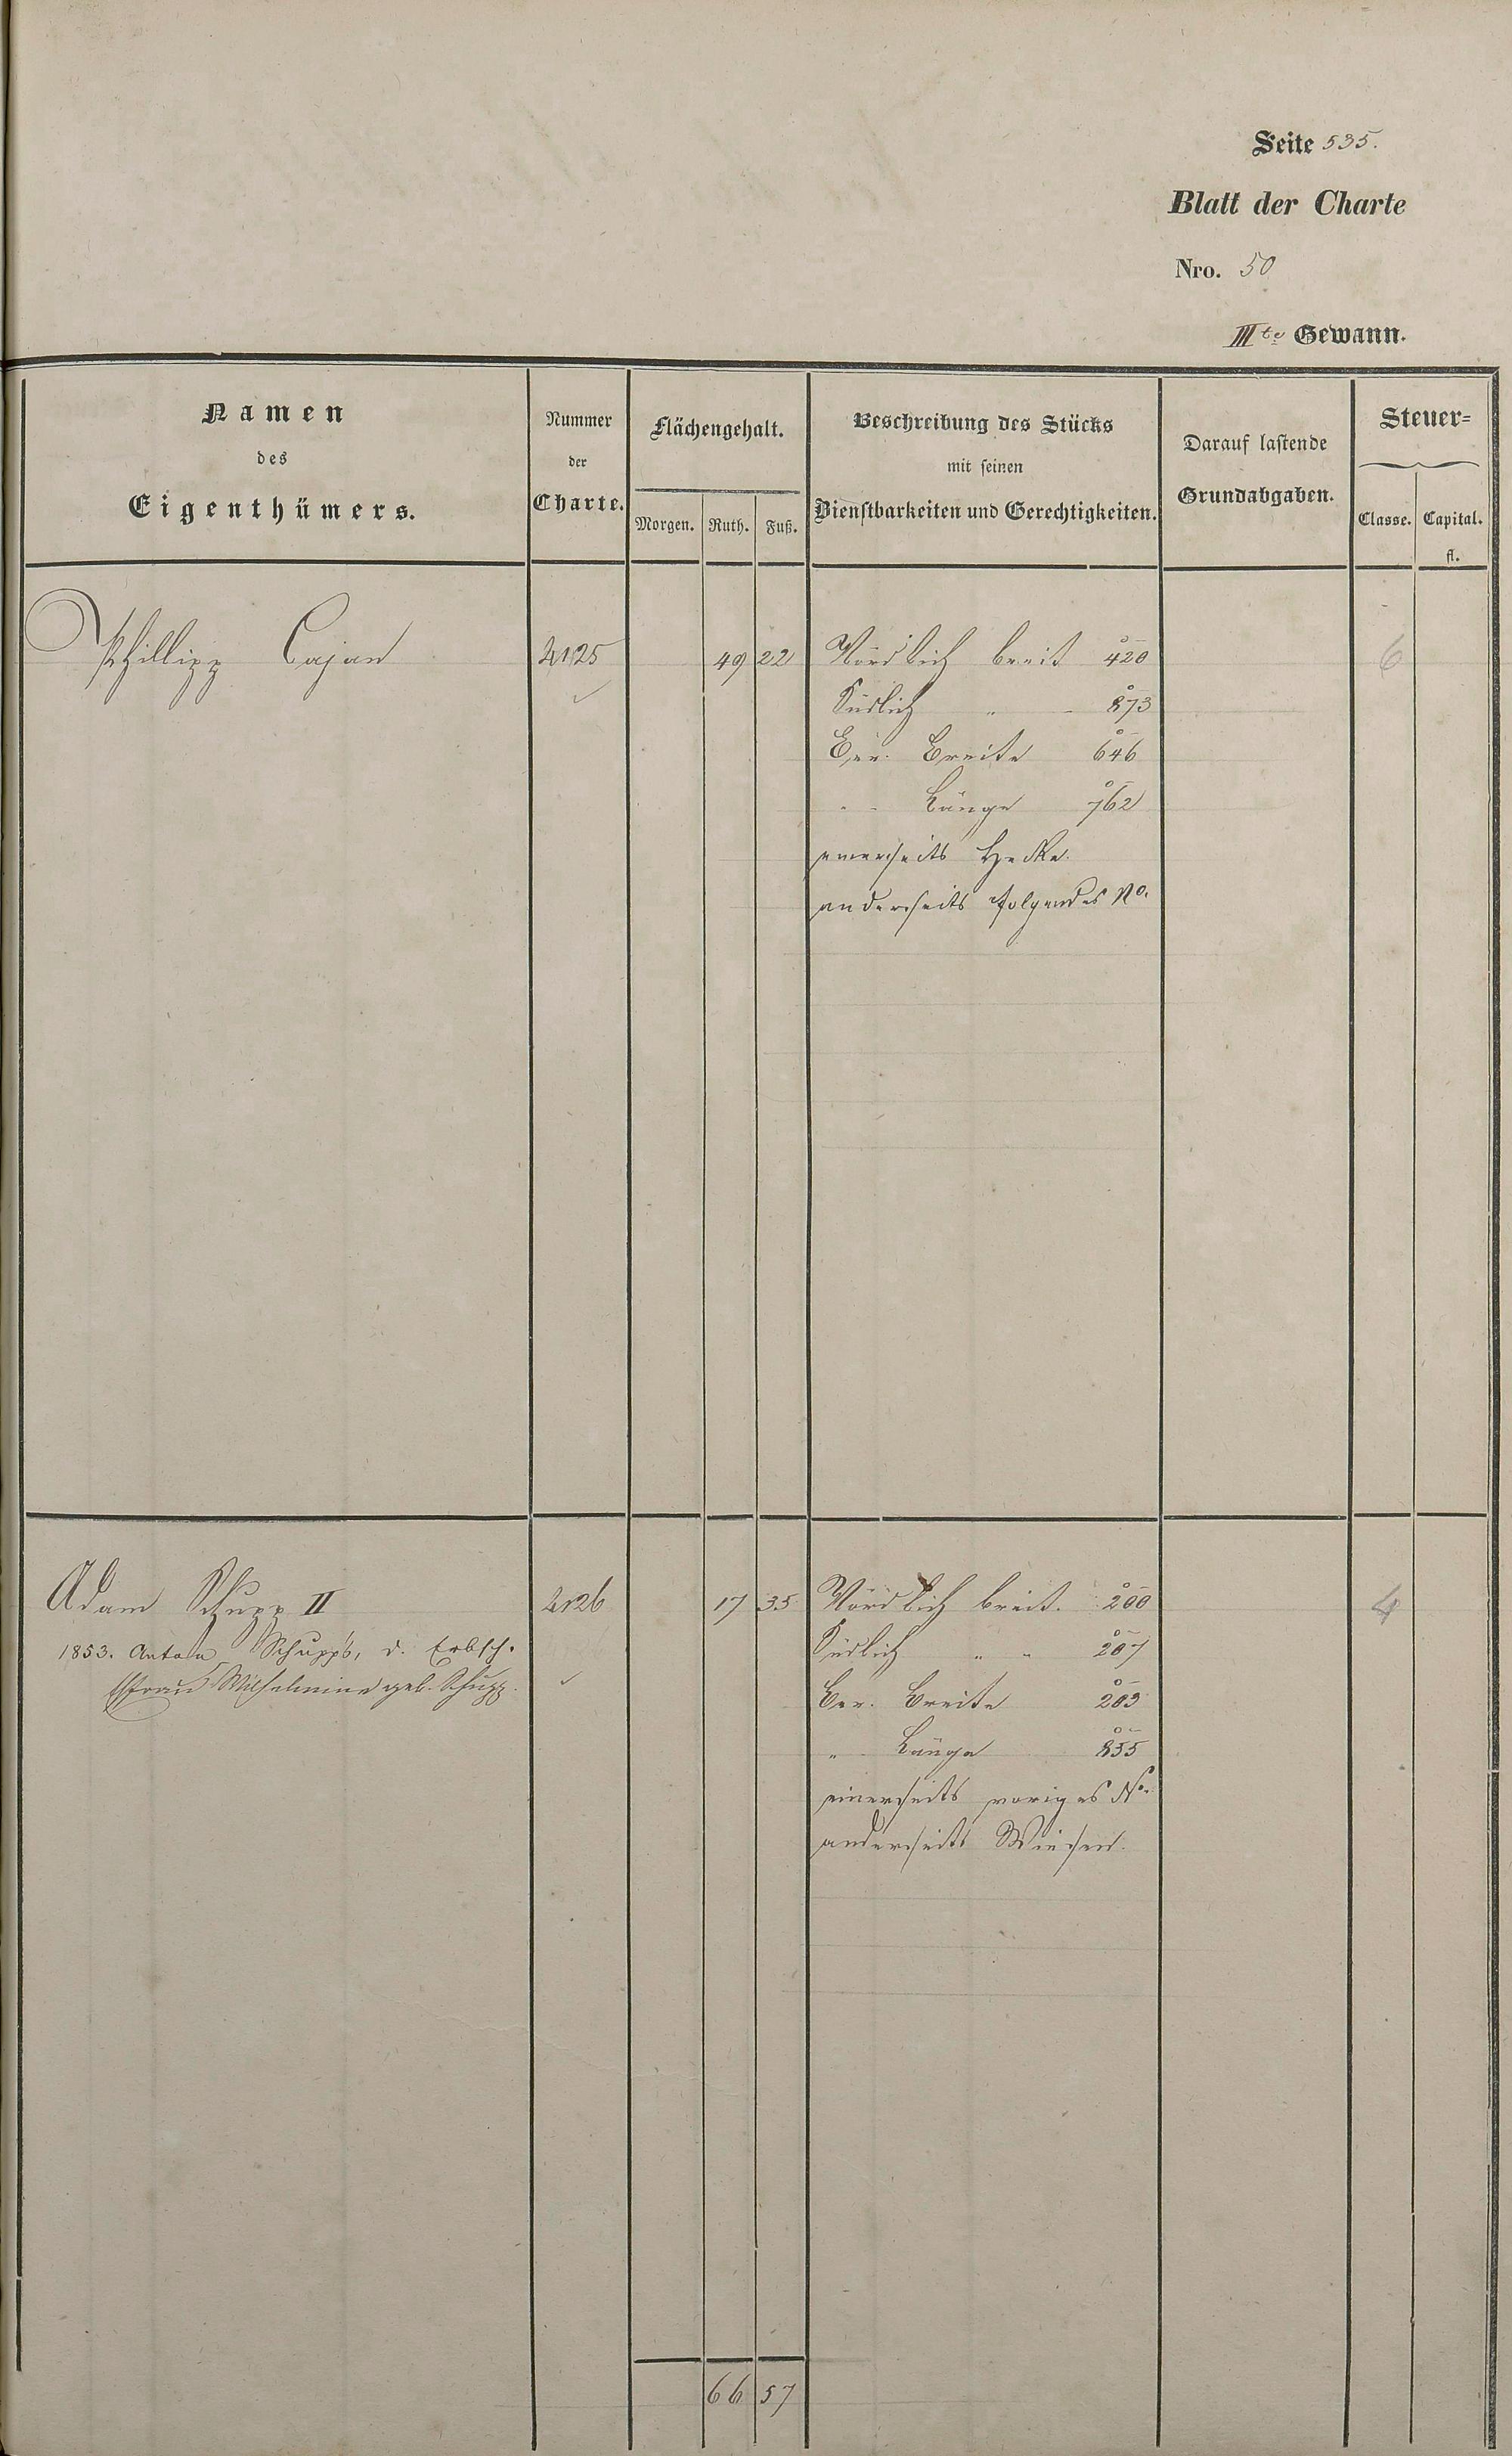 Seite 535.
Blatt der Charte
Nro. 50
IIIte Gewann.
Namen
des
Eigenthümers.
Nummer
der
Charte.
Flächengehalt.
Morgen. Ruth. Fuß.
Beschreibung des Stücks
mit seinen
Dienstbarkeiten und Gerechtigkeiten.
Darauf lastende
Grundabgaben.
Steuer=
Classe. Capital.
fl.
Phillipp Cajan 4125 49 22 Nördlich breit 420 6
Südlich " - 873
Ber. Breite 646
" - Länge 762
einerseits Hecke.
anderseits folgendes No.
Adam Schupp II 4126 17 35 Nördlich breit. 200 4
1853. Anton Schupp's, d. Erbsch. Südlich " " 207
Efrau Wilhelmine geb. Schupp. Ber. Breite 203
" Länge 855
einerseits voriges No.
anderseits Wiesen.
66 57